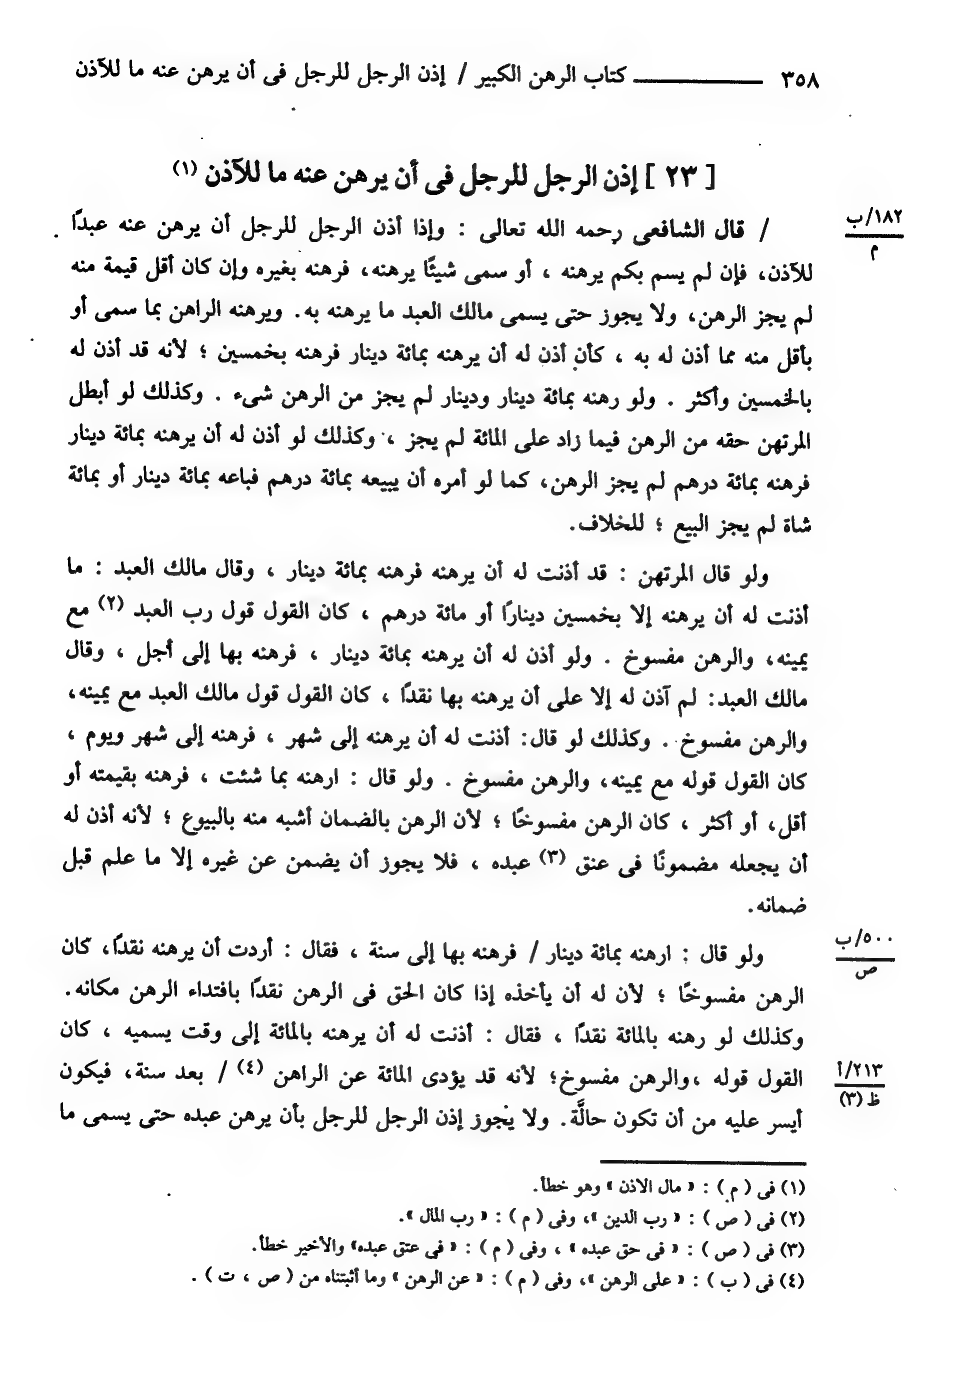 ٣٥٨ ــــــــــــ كتاب الرهن الكبير / إذن الرجل للرجل فى أن يرهن عنه ما للآذن
[ ٢٣ ] إذن الرجل للرجل فى أن يرهن عنه ما للآذن (١)
١٨٢/ب
م
/ قال الشافعى رحمه الله تعالى : وإذا أذن الرجل للرجل أن يرهن عنه عبدًا
للآذن، فإن لم يسم بكم يرهنه ، أو سمى شيئًا يرهنه، فرهنه بغيره وإن كان أقل قيمة منه
لم يجز الرهن، ولا يجوز حتى يسمى مالك العبد ما يرهنه به. ويرهنه الراهن بما سمى أو
بأقل منه مما أذن له به ، كأن أذن له أن يرهنه بمائة دينار فرهنه بخمسين ؛ لأنه قد أذن له
بالخمسين وأكثر . ولو رهنه بمائة دينار ودينار لم يجز من الرهن شىء . وكذلك لو أبطل
المرتهن حقه من الرهن فيما زاد على المائة لم يجز ، وكذلك لو أذن له أن يرهنه بمائة دينار
فرهنه بمائة درهم لم يجز الرهن، كما لو أمره أن يبيعه بمائة درهم فباعه بمائة دينار أو بمائة
شاة لم يجز البيع ؛ للخلاف.
ولو قال المرتهن : قد أذنت له أن يرهنه فرهنه بمائة دينار ، وقال مالك العبد : ما
أذنت له أن يرهنه إلا بخمسين دينارًا أو مائة درهم ، كان القول قول رب العبد (٢) مع
يمينه، والرهن مفسوخ . ولو أذن له أن يرهنه بمائة دينار ، فرهنه بها إلى أجل ، وقال
مالك العبد: لم آذن له إلا على أن يرهنه بها نقدًا ، كان القول قول مالك العبد مع يمينه،
والرهن مفسوخ . وكذلك لو قال: أذنت له أن يرهنه إلى شهر ، فرهنه إلى شهر ويوم ،
كان القول قوله مع يمينه، والرهن مفسوخ . ولو قال : ارهنه بما شئت ، فرهنه بقيمته أو
أقل، أو أكثر ، كان الرهن مفسوخًا ؛ لأن الرهن بالضمان أشبه منه بالبيوع ؛ لأنه أذن له
أن يجعله مضمونًا فى عنق (٣) عبده ، فلا يجوز أن يضمن عن غيره إلا ما علم قبل
ضمانه.
٥٠٠/ب
ص
ولو قال : ارهنه بمائة دينار / فرهنه بها إلى سنة ، فقال : أردت أن يرهنه نقدًا، كان
الرهن مفسوخًا ؛ لأن له أن يأخذه إذا كان الحق فى الرهن نقدًا بافتداء الرهن مكانه.
وكذلك لو رهنه بالمائة نقدًا ، فقال : أذنت له أن يرهنه بالمائة إلى وقت يسميه ، كان
القول قوله ،والرهن مفسوخ؛ لأنه قد يؤدى المائة عن الراهن (٤) / بعد سنة، فيكون
٢١٣/أ
ظ (٣)
أيسر عليه من أن تكون حالَّة. ولا يجوز إذن الرجل للرجل بأن يرهن عبده حتى يسمى ما
(١) فى ( م ) : « مال الاذن » وهو خطأ.
(٢) فى ( ص ) : « رب الدين »، وفى ( م ) : « رب المال ».
(٣) فى ( ص ) : « فى حق عبده » ، وفى ( م ) : « فى عتق عبده» والأخير خطأ.
(٤) فى ( ب ) : « على الرهن »، وفى ( م ) : « عن الرهن » وما أثبتناه من ( ص ، ت ) .